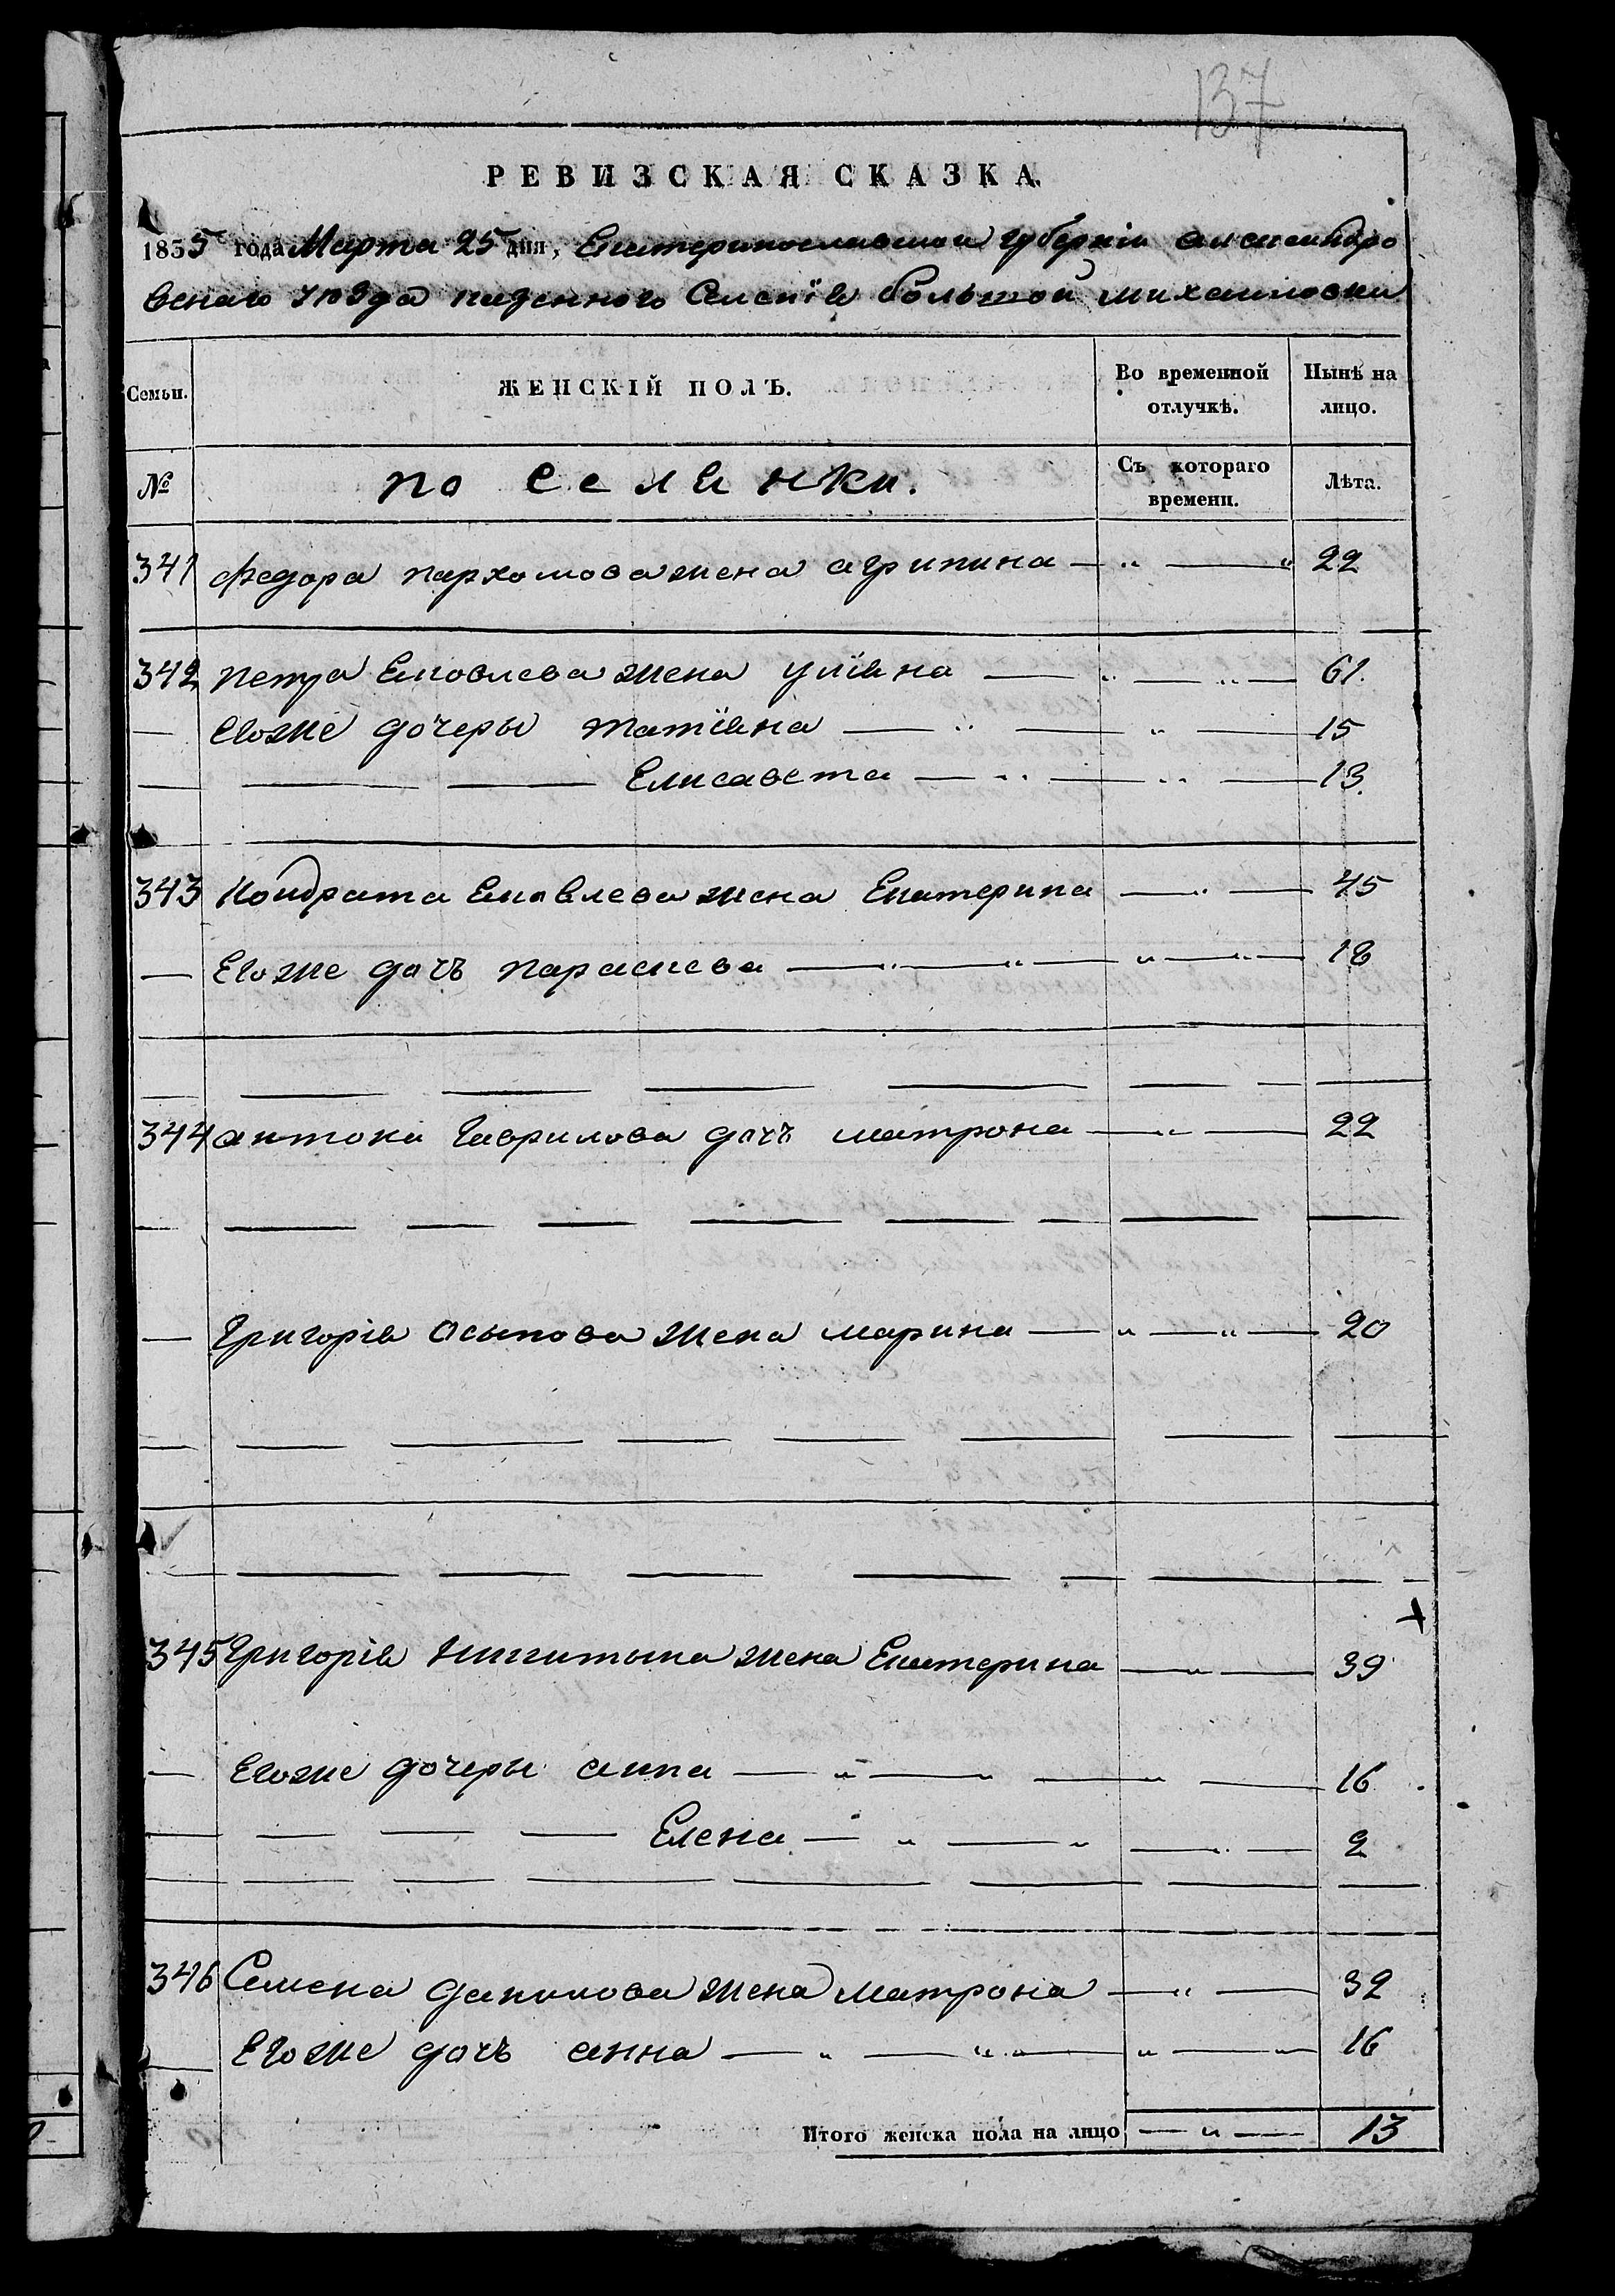 137
РЕВИЗСКАЯ СКАЗКА.
1835 года Марта 25 дня, Екатеринославской губерніи александро
вскаго уезда казенного Селенія большой михаиловки
Семьи. ЖЕНСКІЙ ПОЛЪ. Во временной отлучкѣ. Нынѣ на лицо.
№ поселянки. Съ котораго времени. Лѣта.
341 Федора пархомова жена агрипина — „ — „ 22
342 петра Яковлева жена уліяна — „ — „ — 61.
— Егоже дочеры татіяна — „ — „ — 15
— — — Елисавета — „ — „ — 13.
343 Кондрата Яковлева жена Екатерина — „ — 45
— Егоже дочъ параскева — „ — „ — „ — „ — 18
— — — — — — — —
344 антона Гаврилова дочъ матрона — „ — 22
— — — — — — — — —
— Григорія Осыпова жена марина — „ — „ — 20
— — — — — — — —
— — — — — — — — —
345 Григорія Никитына жена Екатерина — „ — 39
— Егоже дочеры анна — „ — „ — „ — 16
— — — — Елена — „ — „ — „ — 2
— — — — — — — —
346 Семена данилова жена матрона — „ — 32
— Егоже дочъ анна — „ — „ — „ — „ 16
Итого женска пола на лицо — „ — 13